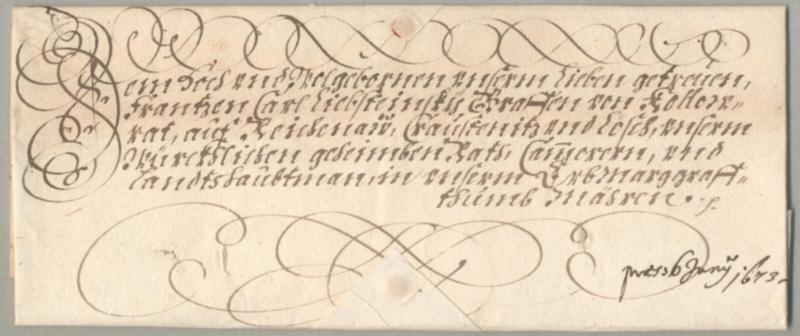 Dem Hoch vnd Wolgebornen vnserm Lieben getreuen,
Frantzen Carl Liebsteinsky Graffen von Kollow-
rat, auf Reichenaw, vnd Losch, vnserm
Würckhlichen geheimben Rath, Camerern, vnd
Landtshaubtman, in vnserm Erbmarggraff-
thumb Mähren. p.
præs 6 Junÿ 1673.